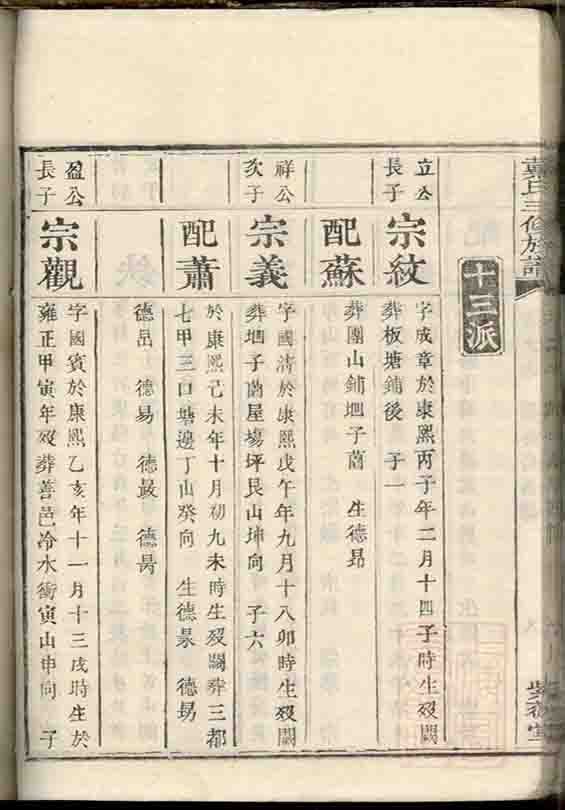 氏三修族譜
十三派
立公
長子
宗紋
字成章於康熙丙子年二月十四子時生歿闕
葬板塘鋪後　子一
配蘇
葬團山鋪堌子㘭　生德昂
祥公
次子
宗義
字國清於康熙戊午年九月十八卯時生歿闕
葬堌子㘭屋塲坪艮山坤向　子六
配蕭
於康熙己未年十月初九未時生歿闕葬三都
七甲三口塘邊丁山癸向　生德景　德昜
德昷　德易　德最　德昺
盈公
長子
宗觀
字國賓於康熙乙亥年十一月十三戌時生於
雍正甲寅年歿葬善邑冷水衝寅山申向　子